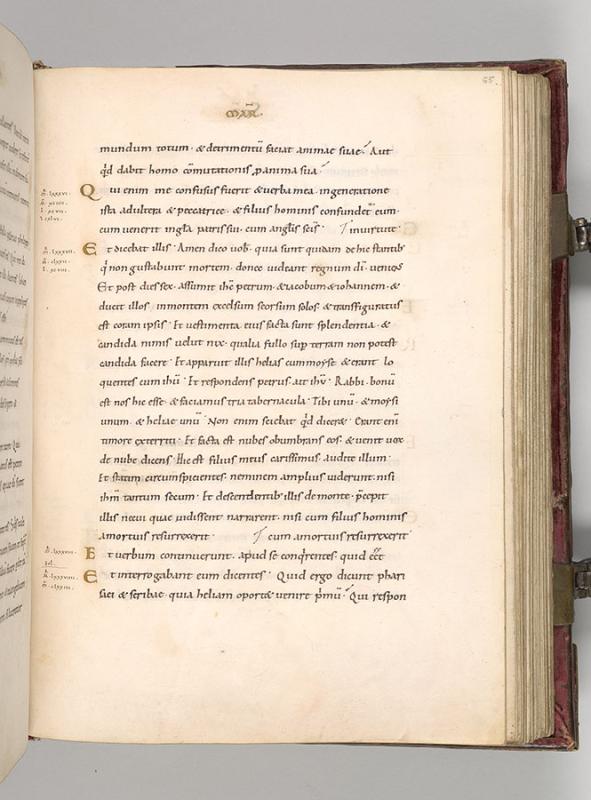 65
MAR̄
mundum totum · & detrimentū faciat animae suae? Aut
qd̄ dabit homo cōmutationis ꝓ anima sua?
Qui enim me confusus fuerit & uerba mea ingeneratione
ista adultera & peccatrice · & filius hominis confundet̄ eum ·
cum uenerit inglā patris sui · cum anglīs sc̄is ·
Et dicebat illis · Amen dico uob̄ · quia sunt quidam de hic stantib·
q̄ non gustabunt mortem · donec uideant regnum dī ueniens
Et post dies sex · assumit ihc̄ petrum · & iacobum & iohannem · &
ducit illos · inmontem excelsum seorsum solos · & transfiguratus
est coram ipsis · Et uestimenta eius facta sunt splendentia · &
candida nimis uelut nix · qualia fullo sup̄ terram non potest
candida facere · Et apparuit illis helias cummoyse & erant lo
quentes cum ihū · Et respondens petrus ait ihū · Rabbi · bonū
est nos hic esse · & faciamus tria tabernacula · Tibi unū · & moysi
unum · & heliae unū · Non enim sciebat qd̄ diceret · Erant enī
timore exterriti · Et facta est nubes obumbrans eos · & uenit uox
de nube dicens · Hic est filius meus carissimus · audite illum ·
Et statim circumspicientes · neminem amplius uiderunt · nisi
ihm̄ tantum secum · Et descendentib· illis de monte · p̄cepit
illis necui quae uidissent narrarent · nisi cum filius hominis
amortuis resurrexerit · cum amortuis resurrexerit
Et uerbum continuerunt · apud se conq̄rentes quid eēt
Et interrogabant eum dicentes · Quid ergo dicunt phari
saei & scribae · quia heliam oportet uenire p̄mū? Qui respon